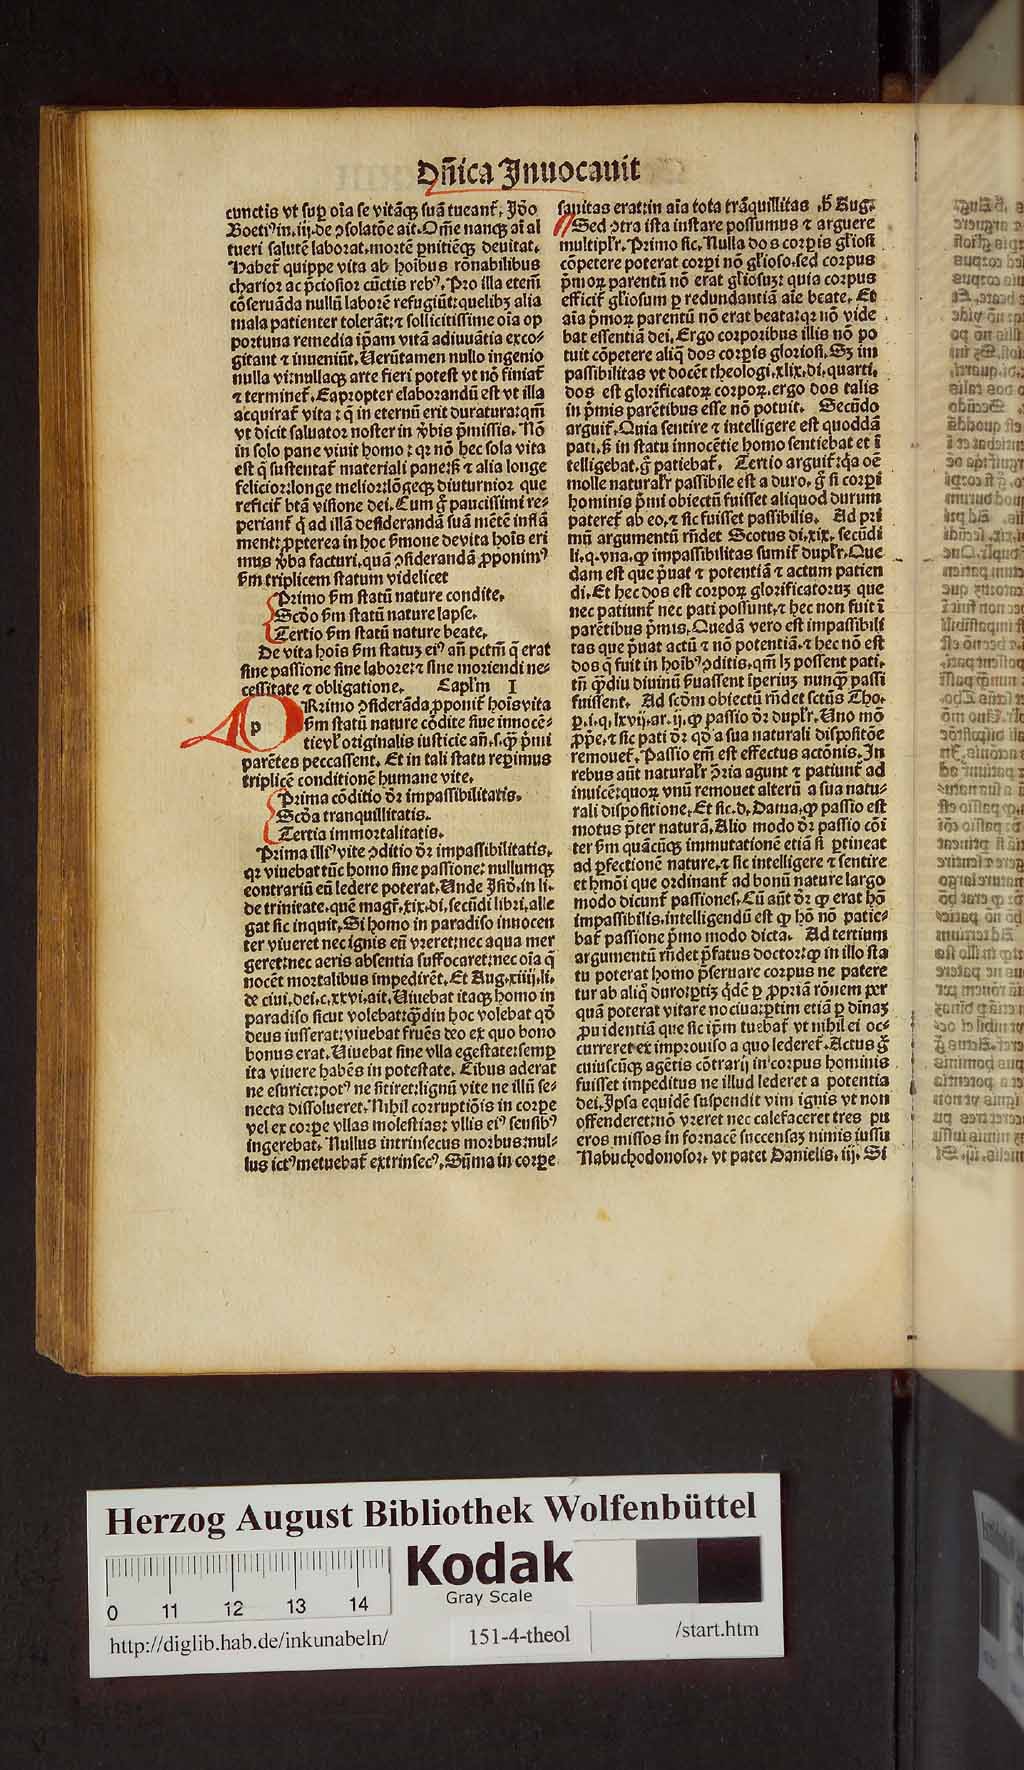 Dñica Inuocauit
cunctis vt suꝑ oĩa se vitãꝗ suã tueant᷑. Jõo
Boetiꝰ in .iij. de ↄsolatõe ait. Om̃e nanꝗ aĩal
tueri salutẽ laborat. mortẽ ꝑnitiẽꝗ deuitat.
Habet᷑ quippe vita ab hoĩbus rõnabilibus
charior ac p̃ciosior cũctis rebꝰ. Pro illa etem̃
cõseruãda nullũ laborẽ refugiũt: quelibꝫ alia
mala patienter tolerãt: ⁊ sollicitissime oĩa op
portuna remedia ip̃am vitã adiuuãtia exco⸗
gitant ⁊ inueniũt. Uerũtamen nullo ingenio
nulla vi: nullaꝗ arte fieri potest vt nõ finiat᷑
⁊ terminet᷑. Eapropter elaborandũ est vt illa
acquirat᷑ vita: q̃ in eternũ erit duratura: qm̃
vt dicit saluator noster in v̾bis p̃missis. Nõ
in solo pane viuit homo: qꝛ nõ hec sola vita
est q̃ sustentat᷑ materiali pane: sꝫ ⁊ alia longe
felicior: longe melior: lõgeꝗ diuturnior que
reficit᷑ btã visione dei. Cum g̃ paucissimi re⸗
periant᷑ q̃ ad illã desiderandã suã mẽtẽ inflã
ment: ꝓpterea in hoc s̃mone de vita hoĩs eri
mus v̾ba facturi. quã ↄsiderandã ꝓponimꝰ
s̃m triplicem statum videlicet
Primo s̃m statũ nature condite.
Scďo s̃m statũ nature lapse.
Tertio s̃m statũ nature beate.
De vita hoĩs s̃m statuꝫ eiꝰ añ pctm̃ q̃ erat
sine passione sine labore: ⁊ sine moriendi ne⸗
cessitate ⁊ obligatione. Caplm̃ I
p
Rimo ↄsiderãda ꝓponit᷑ hoĩs vita
s̃m statũ nature cõdite siue innocẽ⸗
tie vl̃ originalis iusticie añ .s. ꝙ p̃mi
parẽtes peccassent. Et in tali statu reperimus
triplicẽ conditionẽ humane vite.
Prima cõditio dr̃ impassibilitatis.
Scďa tranquillitatis.
Tertia immortalitatis.
Prima illiꝰ vite ↄditio dr̃ impassibilitatis.
qꝛ viuebat tũc homo sine passione: nullumꝗ
contrariũ eũ ledere poterat. Unde Isid̃. in li.
de trinitate. quẽ magr̃. xix. di. secũdi libri. alle
gat sic inquit. Si homo in paradiso innocen
ter viueret nec ignis eũ vreret: nec aqua mer
geret: nec aeris absentia suffocaret: nec oĩa q̃
nocẽt mortalibus impedirẽt. Et Aug. xiiij. li.
de ciui. dei. c. xxvi. ait. Uiuebat itaꝗ homo in
paradiso sicut volebat: ꝗ̃diu hoc volebat qď
deus iusserat: viuebat fruẽs deo ex quo bono
bonus erat. Uiuebat sine vlla egestate: semꝑ
ita viuere habẽs in potestate. Cibus aderat
ne esuriret: potꝰ ne sitiret: lignũ vite ne illũ se⸗
necta dissolueret. Nihil corruptiõis in corꝑe
vel ex corꝑe vllas molestias: vllis eiꝰ sensibꝰ
ingerebat. Nullus intrinsecus morbus: nul⸗
lus ictꝰ metuebat᷑ extrinsecꝰ. Sũma in corꝑe
sanitas erat: in aĩa tota trãquillitas .h̃ Aug.
Sed ↄtra ista instare possumus ⁊ arguere
multipl̃r. Primo sic. Nulla dos corꝑis gl̃iosi
cõpetere poterat corpi nõ gl̃ioso. sed corpus
p̃moꝝ parentũ nõ erat gl̃iosuꝫ: quia corpus
efficit᷑ gl̃iosum ꝑ redundantiã aĩe beate. Et
aĩa p̃moꝝ parentũ nõ erat beata: qꝛ nõ vide
bat essentiã dei. Ergo corporibus illis nõ po
tuit cõpetere aliq̃ dos corꝑis gloriosi. Sꝫ im
passibilitas vt docẽt theologi. xlix. di. quarti.
dos est glorificatoꝝ corpoꝝ. ergo dos talis
in p̃mis parẽtibus esse nõ potuit. Secũdo
arguit᷑. Quia sentire ⁊ intelligere est quoddã
pati. s̃ in statu innocẽtie homo sentiebat et ĩ
telligebat. g̃ patiebat᷑. Tertio arguit᷑: q̃a oẽ
molle natural̃r passibile est a duro. g̃ si corpi
hominis p̃mi obiectũ fuisset aliquod durum
pateret᷑ ab eo. ⁊ sic fuisset passibilis. Ad pri
mũ argumentũ rñdet Scotus di. xix. secũdi
li. q. vna. ꝙ impassibilitas sumit᷑ dupl̃r. Que
dam est que p̃uat ⁊ potentiã ⁊ actum patien
di. Et hec dos est corpoꝝ glorificatoruꝫ que
nec patiunt᷑ nec pati possunt. ⁊ hec non fuit ĩ
parẽtibus p̃mis. Quedã vero est impassibili
tas que p̃uat actũ ⁊ nõ potentiã. ⁊ hec nõ est
dos q̃ fuit in hoĩbꝰ ↄditis. qm̃ lꝫ possent pati.
tñ ꝗ̃diu diuinũ s̃uassent ĩperiuꝫ nunꝗ̃ passi
fuissent. Ad scďm obiectũ rñdet sctũs Tho.
ꝑ. i. q. lxvij. ar. ij. ꝙ passio dr̃ dupl̃r. Uno mõ
ꝓp̃e. ⁊ sic pati dr̃ qď a sua naturali dispositõe
remouet᷑. Passio em̃ est effectus actõnis. In
rebus aũt natural̃r ↄ̃ria agunt ⁊ patiunt᷑ ad
inuicẽ: quoꝝ vnũ remouet alterũ a sua natu⸗
rali dispositione. Et sic. d. Dama. ꝙ passio est
motus p̃ter naturã. Alio modo dr̃ passio cõi
ter s̃m quãcũꝗ immutationẽ etiã si ꝑtineat
ad ꝑfectionẽ nature. ⁊ sic intelligere ⁊ sentire
et hmõi que ordinant᷑ ad bonũ nature largo
modo dicunt᷑ passiones. Cũ aũt dr̃ ꝙ erat hõ
impassibilis. intelligendũ est ꝙ hõ nõ patie⸗
bat᷑ passione p̃mo modo dicta. Ad tertium
argumentũ rñdet p̃fatus doctor: ꝙ in illo sta
tu poterat homo p̃seruare corpus ne patere
tur ab aliq̃ duro: ꝑtiꝫ q̃dẽ ꝑ ꝓpriã rõnem per
quã poterat vitare nociua: ꝑtim etiã ꝑ diuinaꝫ
ꝓuidentiã que sic ip̃m tuebat᷑ vt nihil ei oc⸗
curreret ex improuiso a quo lederet᷑. Actus g̃
cuiuscũꝗ agẽtis cõtrarij in corpus hominis
fuisset impeditus ne illud lederet a potentia
dei. Ipsa equidẽ suspendit vim ignis vt non
offenderet: nõ vreret nec calefaceret tres pu
eros missos in fornacẽ succensaꝫ nimis iussu
Nabuchodonosor. vt patet Danielis. iij. Si
Herzog August Bibliothek Wolfenbüttel
Kodak
Gray Scale
0 11 12 13 14
http://diglib.hab.de/inkunabeln/
151-4-theol
/start.htm